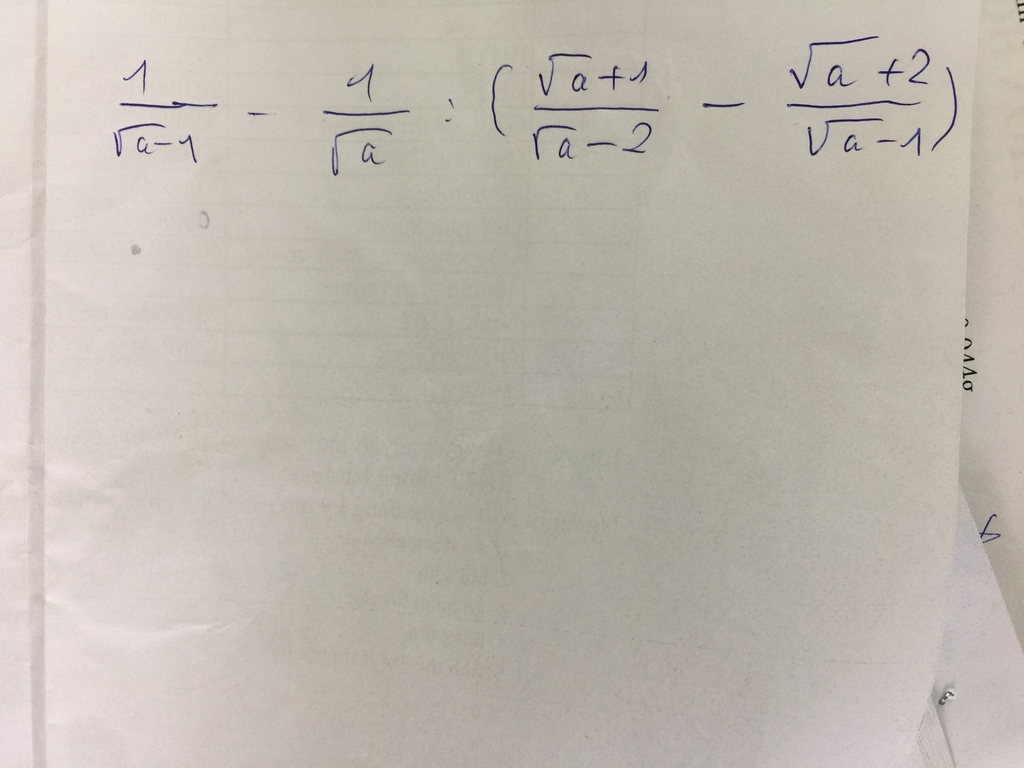 1/(√a-1) - 1/√a : ((√a+1)/(√a-2) - (√a+2)/(√a-1))